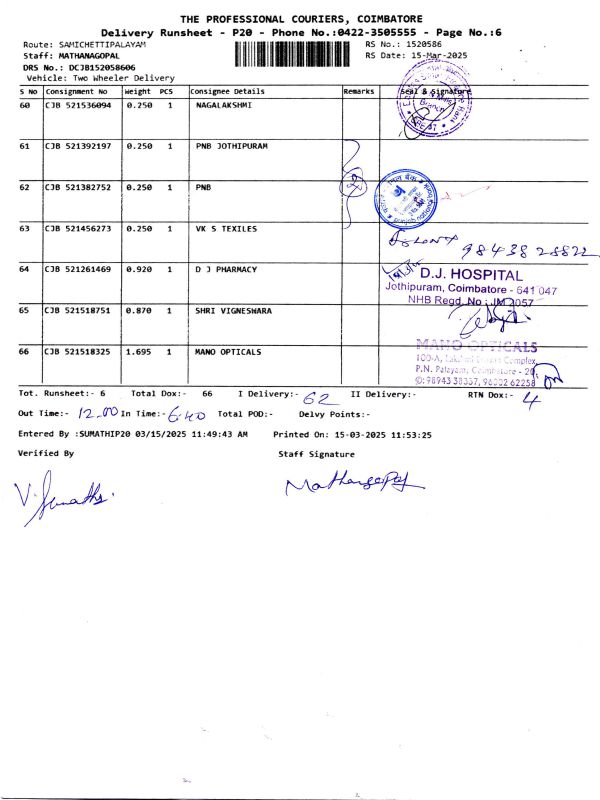 THE PROFESSIONAL COURIERS, COIMBATORE
Delivery Runsheet - P20 - Phone No.:0422-3505555 - Page No.:6
Route: SAMICHETTIPALAYAM RS No.: 1520586
Staff: MATHANAGOPAL RS Date: 15-Mar-2025
DRS No.: DCJB152058606
Vehicle: Two Wheeler Delivery
S No Consignment No Weight PCS Consignee Details Remarks Seal & Signature
60 CJB 521536094 0.250 1 NAGALAKSHMI
61 CJB 521392197 0.250 1 PNB JOTHIPURAM
62 CJB 521382752 0.250 1 PNB
63 CJB 521456273 0.250 1 VK S TEXILES
98438 28822
64 CJB 521261469 0.920 1 D J PHARMACY
D.J. HOSPITAL
Jothipuram, Coimbatore - 641 047
NHB Regd. No : JM 2057
65 CJB 521518751 0.870 1 SHRI VIGNESWARA
66 CJB 521518325 1.695 1 MANO OPTICALS
MANO OPTICALS
100-A, Lakshmi Complex,
P.N. Palayam, Coimbatore - 20.
✆: 98943 38357, 96002 62258
Tot. Runsheet:- 6 Total Dox:- 66 I Delivery:- 62 II Delivery:- RTN Dox:- 4
Out Time:- 12.00 In Time:- 6.40 Total POD:- Delvy Points:-
Entered By :SUMATHIP20 03/15/2025 11:49:43 AM Printed On: 15-03-2025 11:53:25
Verified By Staff Signature
V. Sumathi. Mathanagopal